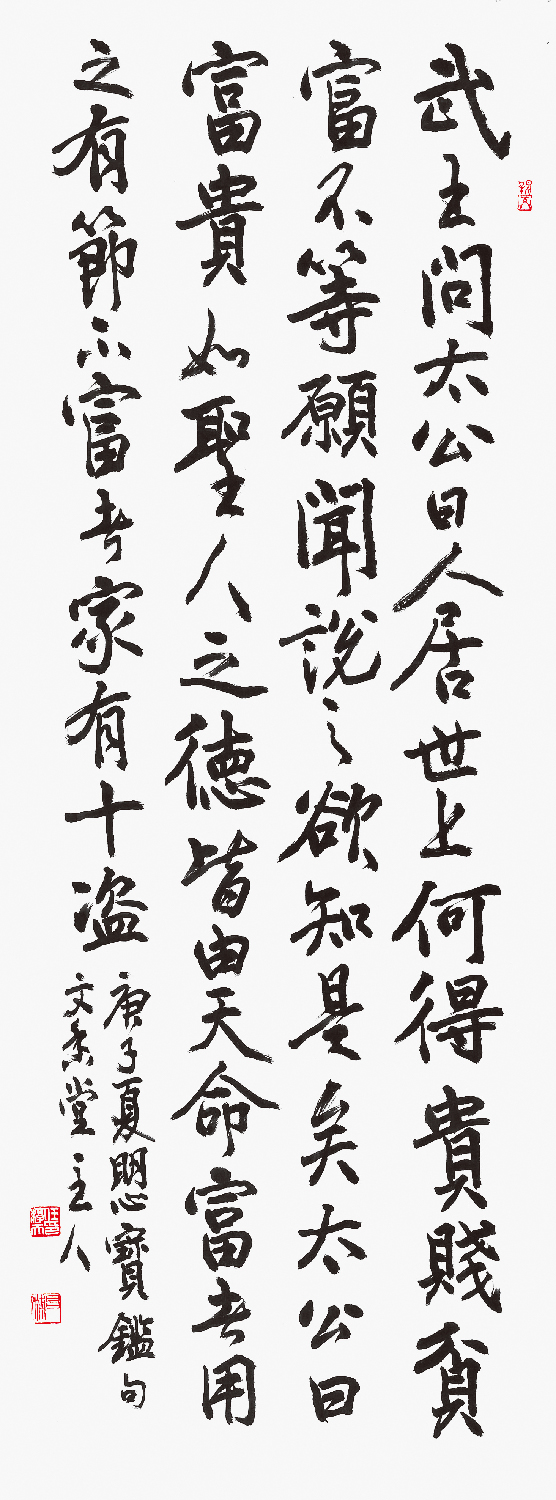 武王問太公曰人居世上何得貴賤貧
富不等願聞說之欲知是矣太公曰
富貴如聖人之德皆由天命富者用
之有節不富者家有十盜
庚子夏明心寶鑑句
文香堂主人